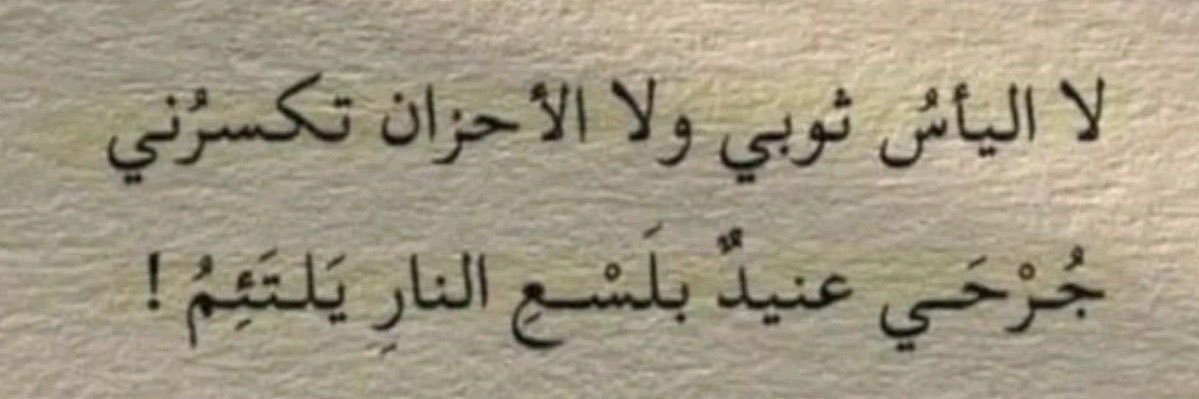 لا اليأسُ ثوبي ولا الأحزان تكسرُني
جُرْحَي عنيدٌ بلَسْعِ النارِ يَلتَئِمُ !